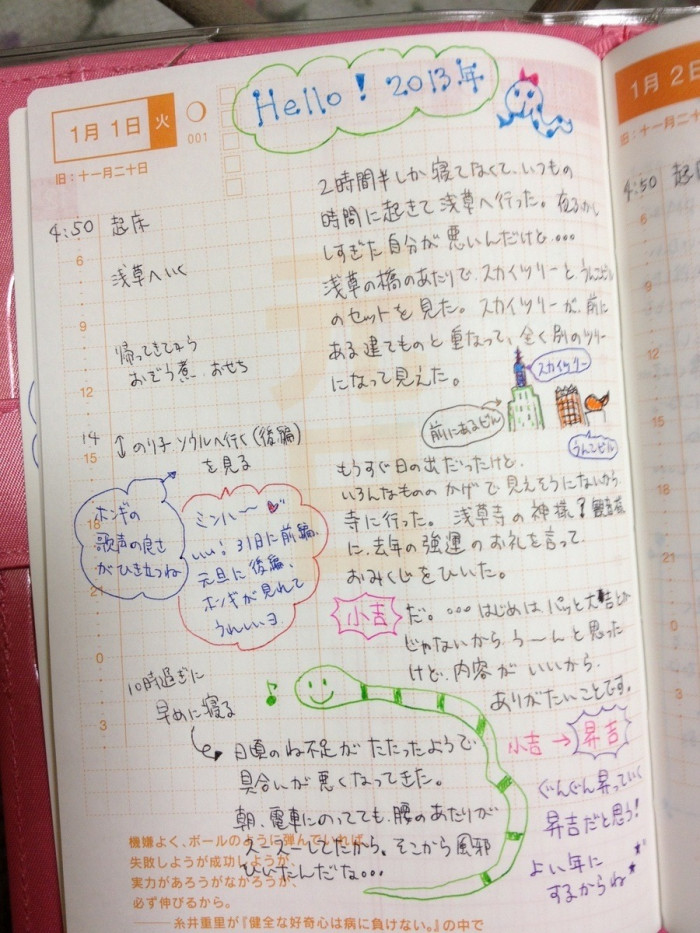 Hello! 2013年
1月1日 火
001
旧：十一月二十日
1月2日
旧：十一月
4:50 起床
浅草へいく
帰ってきてから
おぞう煮 おせち
14 ↕ のり子ソウルへ行く(後編)
を見る
ホンギの
歌声の良さ
がひき立つね
ミンハ〜
いい! 31日に前編、
元旦に後編。
ホンギが見れて
うれしいヨ
10時過ぎに
早めに寝る
2時間半しか寝てなくて、いつもの
時間に起きて浅草へ行った。夜ふかし
しすぎた自分が悪いんだけど...
浅草の橋のあたりで、スカイツリーと、うんこビル
のセットを見た。スカイツリーが、前に
ある建てものと重なって、全く別のツリー
になって見えた。
スカイツリー
前にあるビル
うんこビル
もうすぐ日の出だったけど、
いろんなもののかげで見えそうにないから、
寺に行った。浅草寺の神様?観音様
に、去年の強運のお礼を言って、
おみくじをひいた。
小吉 だ。...はじめは、パッと大吉とか
じゃないから、う〜んと思った
けど、内容がいいから、
ありがたいことです。
小吉→昇吉
ぐんぐん昇っていく
昇吉だと思う!
よい年に
するからね
日頃のね不足がたたったようで
具合いが悪くなってきた。
朝、電車にのってても、腰のあたりが
スースーしてたから。そこから風邪
ひいたんだな...
機嫌よく、ボールのように弾んでいれば、
失敗しようが成功しようが、
実力があろうがなかろうが、
必ず伸びるから。
——糸井重里が『健全な好奇心は病に負けない。』の中で
6
9
12
15
18
21
0
3
4:50 起床
6
9
12
15
0
3